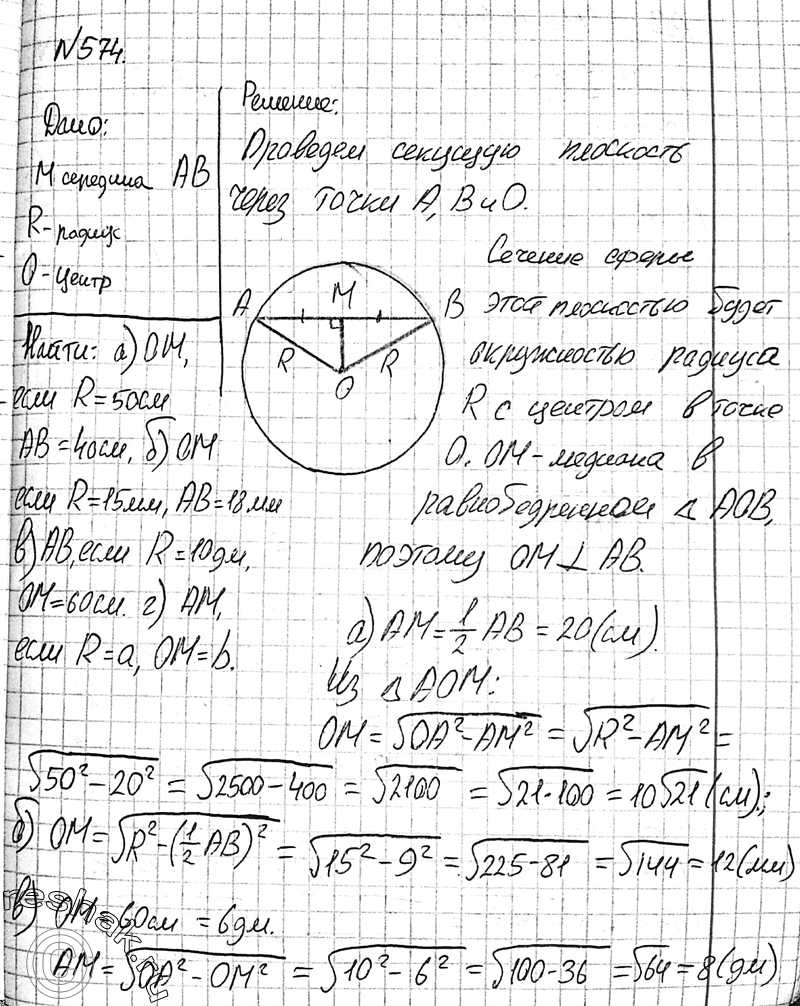 №574.
Дано:
M середина AB
R-радиус
O-центр
Найти: а) OM,
если R=50см
AB=40см, б) OM
если R=15мм, AB=18мм
в) AB, если R=10дм,
OM=60см. г) AM,
если R=a, OM=b.
Решение:
Проведем секущую плоскость
через точки A, B и O.
A M B
R R
O
Сечение сферы
этой плоскостью будет
окружностью радиуса
R с центром в точке
O. OM-медиана в
равнобедренном △ AOB,
поэтому OM⊥AB.
а) AM=1/2 AB=20(см).
Из △AOM:
OM=√(OA²-AM²)=√(R²-AM²)=
√(50²-20²)=√(2500-400)=√2100=√(21·100)=10√21(см);
б) OM=√(R²-(1/2 AB)²)=√(15²-9²)=√(225-81)=√144=12(мм)
в) OM=60см=6дм.
AM=√(OA²-OM²)=√(10²-6²)=√(100-36)=√64=8(дм)
reshak.ru